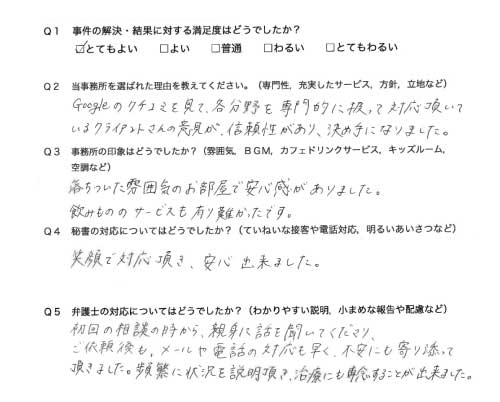 Q1 事件の解決・結果に対する満足度はどうでしたか？
☑とてもよい □よい □普通 □わるい □とてもわるい
Q2 当事務所を選ばれた理由を教えてください。（専門性，充実したサービス，方針，立地など）
Googleのクチコミを見て、各分野を専門的に扱って対応頂いて
いるクライアントさんの意見が、信頼性があり、決め手になりました。
Q3 事務所の印象はどうでしたか？（雰囲気，BGM，カフェドリンクサービス，キッズルーム，
空調など）
落ちついた雰囲気のお部屋で安心感がありました。
飲みもののサービスも有り難かったです。
Q4 秘書の対応についてはどうでしたか？（ていねいな接客や電話対応，明るいあいさつなど）
笑顔で対応頂き、安心出来ました。
Q5 弁護士の対応についてはどうでしたか？（わかりやすい説明，小まめな報告や配慮など）
初回の相談の時から、親身に話を聞いてくださり、
ご依頼後も、メールや電話の対応も早く、不安にも寄り添って
頂きました。頻繁に状況を説明頂き、治療にも専念することが出来ました。